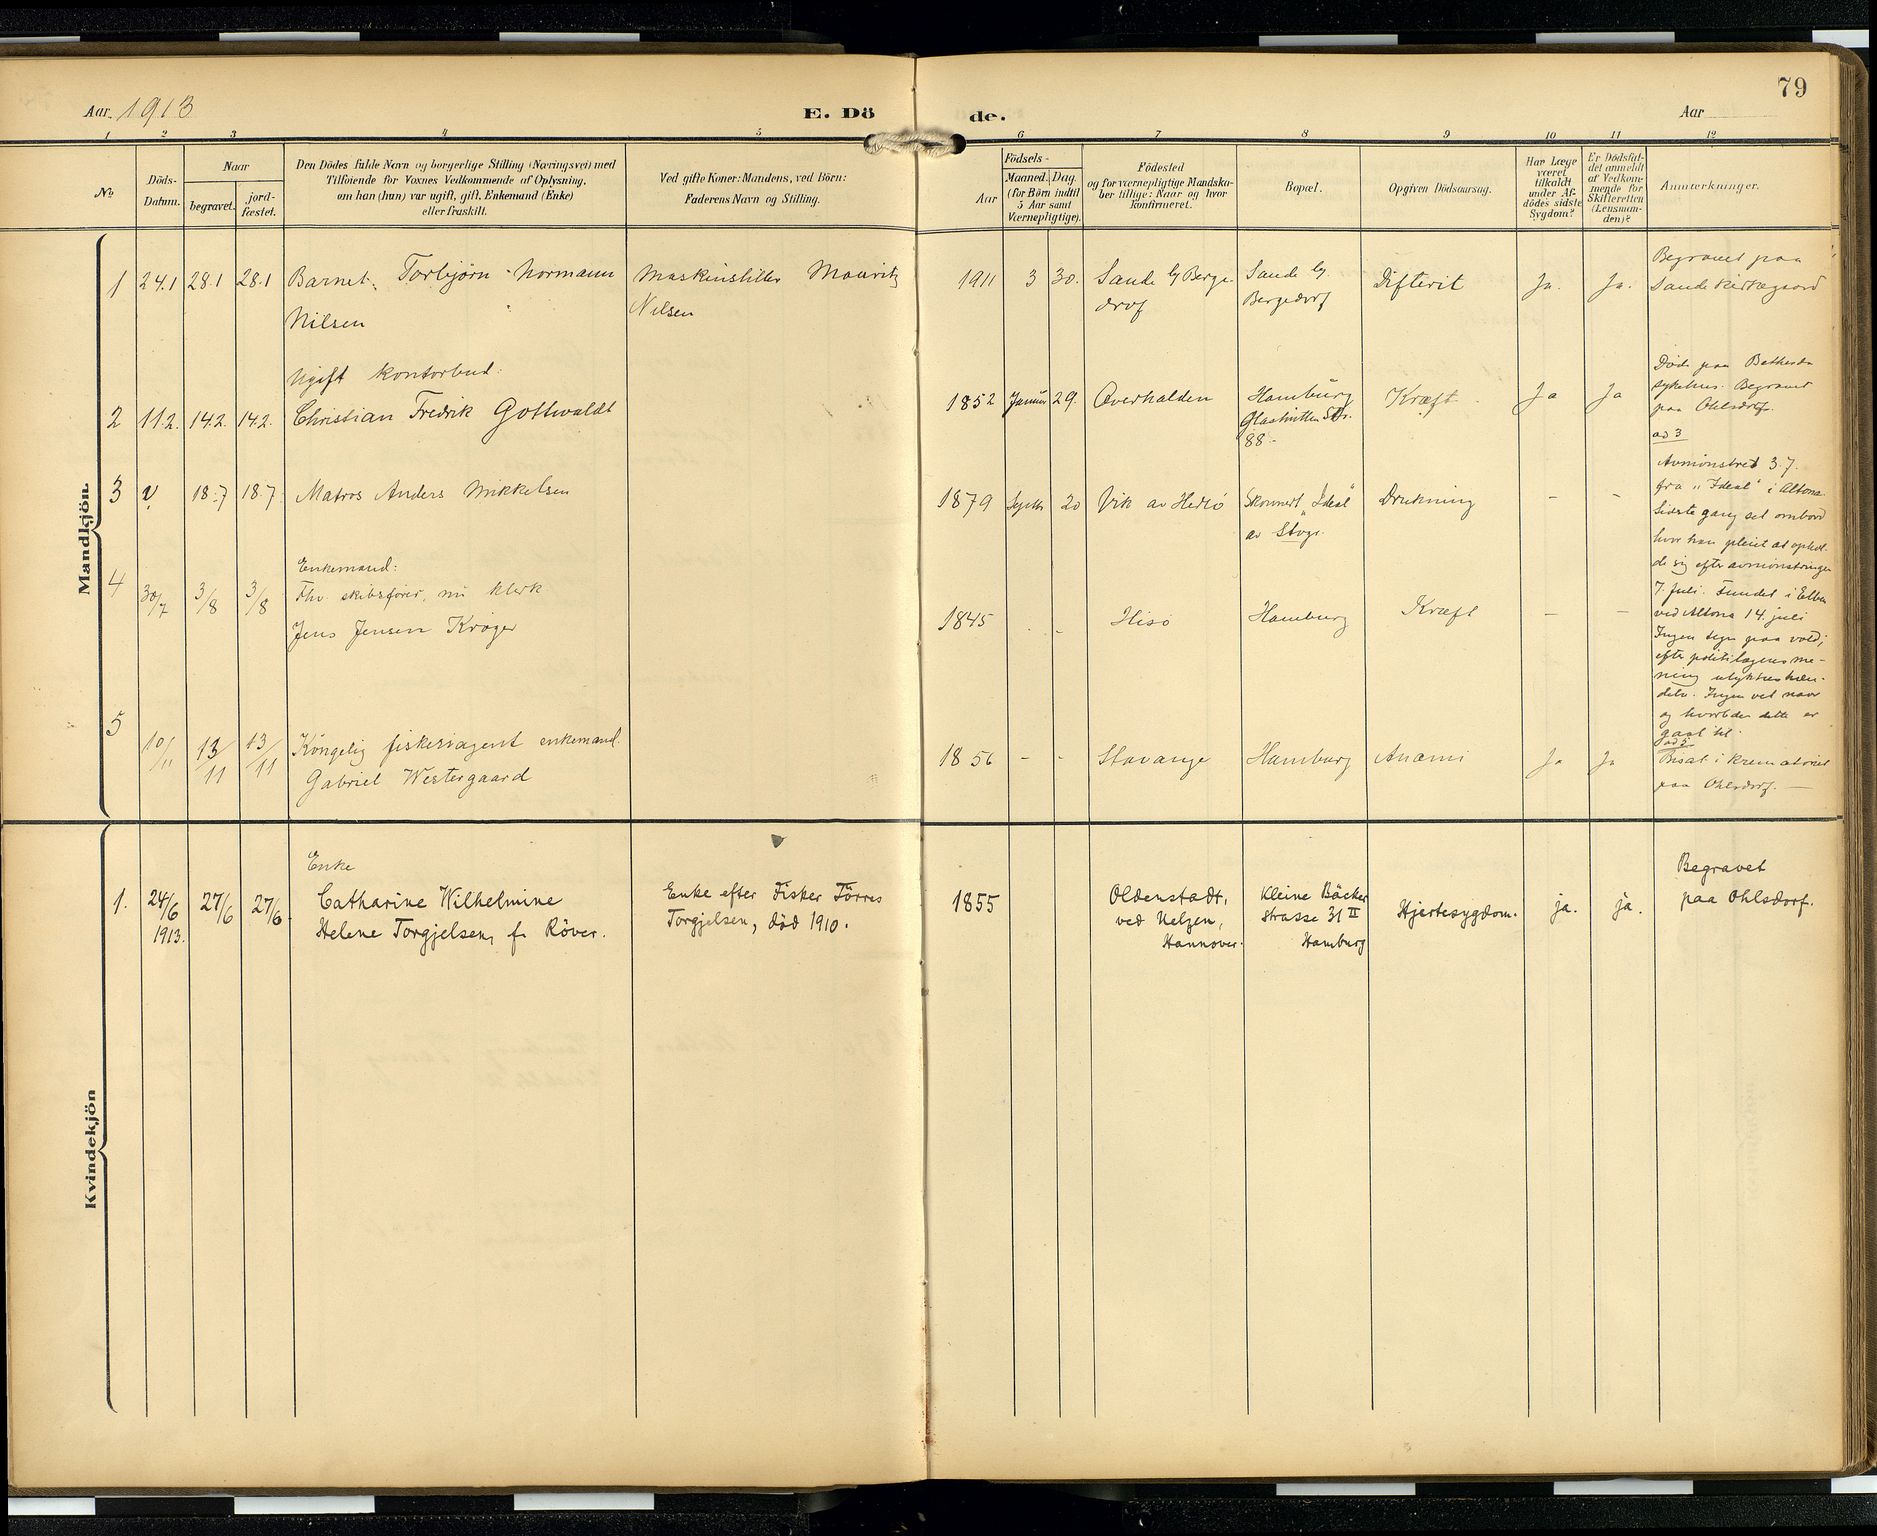 79
Aar 1913
E. Dö
de.
Aar
1 2 3 4 5 6 7 8 9 10 11 12
No
Döds-
Datum.
Naar
begravet.
jord-
fæstet.
Den Dödes fulde Navn og borgerlige Stilling (Næringsvei) med
Tilföiende for Voxnes Vedkommende af Oplysning,
om han (hun) var ugift, gift, Enkemand (Enke)
eller fraskilt.
Ved gifte Koner: Mandens, ved Börn:
Faderens Navn og Stilling.
Födsels-
Aar
Maaned. Dag.
(for Börn indtil
5 Aar samt
Værnepligtige).
Födested
og for værnepligtige Mandska-
ber tillige: Naar og hvor
konfirmeret.
Bopæl.
Opgiven Dödsaarsag.
Har Læge
været
tilkaldt
under Af-
dödes sidste
Sygdom?
Er Dödsfal-
det anmeldt
af Vedkom-
mende for
Skifteretten
(Lensman-
den)?
Anmærkninger.
Mandkjön
1 24.1 28.1 28.1 Barnet: Torbjørn Normann
Nilsen
Maskinstiller Mauritz
Nilsen
1911 3 30. Sande b/ Berge-
drof
Sande b/
Bergedorf
Difterit Ja. Ja.
Begravet paa
Sande kirkegaard
2 11.2. 14.2. 14.2. Ugift kontorbud:
Christian Fredrik Gottwaldt
1852 Januar 29. Overhalden
Hamburg
Glashütten Str.
88.-
Kræft Ja Ja
Død paa Bethesda
sykehus. Begravet
paa Ohlsdorf.
3 18.7 18.7 Matros Anders Mikkelsen
1879 Septb 20 Vik av
Skonnert "Ideal"
av Stvgr.
Drukning - -
ad 3
Avmønstret 3.7.
fra "Ideal" i Altona
Sidste gang set ombord
hvor han pleiet at ophol-
de sig efter avmønstringen
7. juli. Fundet i Elben
ved Altona 14. juli
Ingen tegn paa vold;
efter politilægens me-
ning ulykkeshæn-
delse. Ingen vet naar
og hvorledes dette er
gaat til.
4 30/7 3/8 3/8 Enkemand:
Fhv. skibsfører, nu klerk
Jens Jensen Krøger
1845 - - Hisø Hamburg Kræft - -
5 10/11 13/11 13/11 Kongelig fiskeriagent enkemand.
Gabriel Westergaard
1856 - - Stavanger Hamburg Anæmi Ja Ja
ad 5
Bisat i krematoriet
paa Ohlsdorf. -
Kvindekjön
1. 24/6
1913.
27/6 27/6. Enke
Catharine Wilhelmine
Helene Torgjelsen, f. Röver.
Enke efter Fisker Törres
Torgjelsen, död 1910.
1855 Oldenstadt,
ved Uelzen,
Hannover.
Kleine Bäcker
strasse 31 II
Hamburg
Hjertesygdom. ja. ja.
Begravet
paa Ohlsdorf.